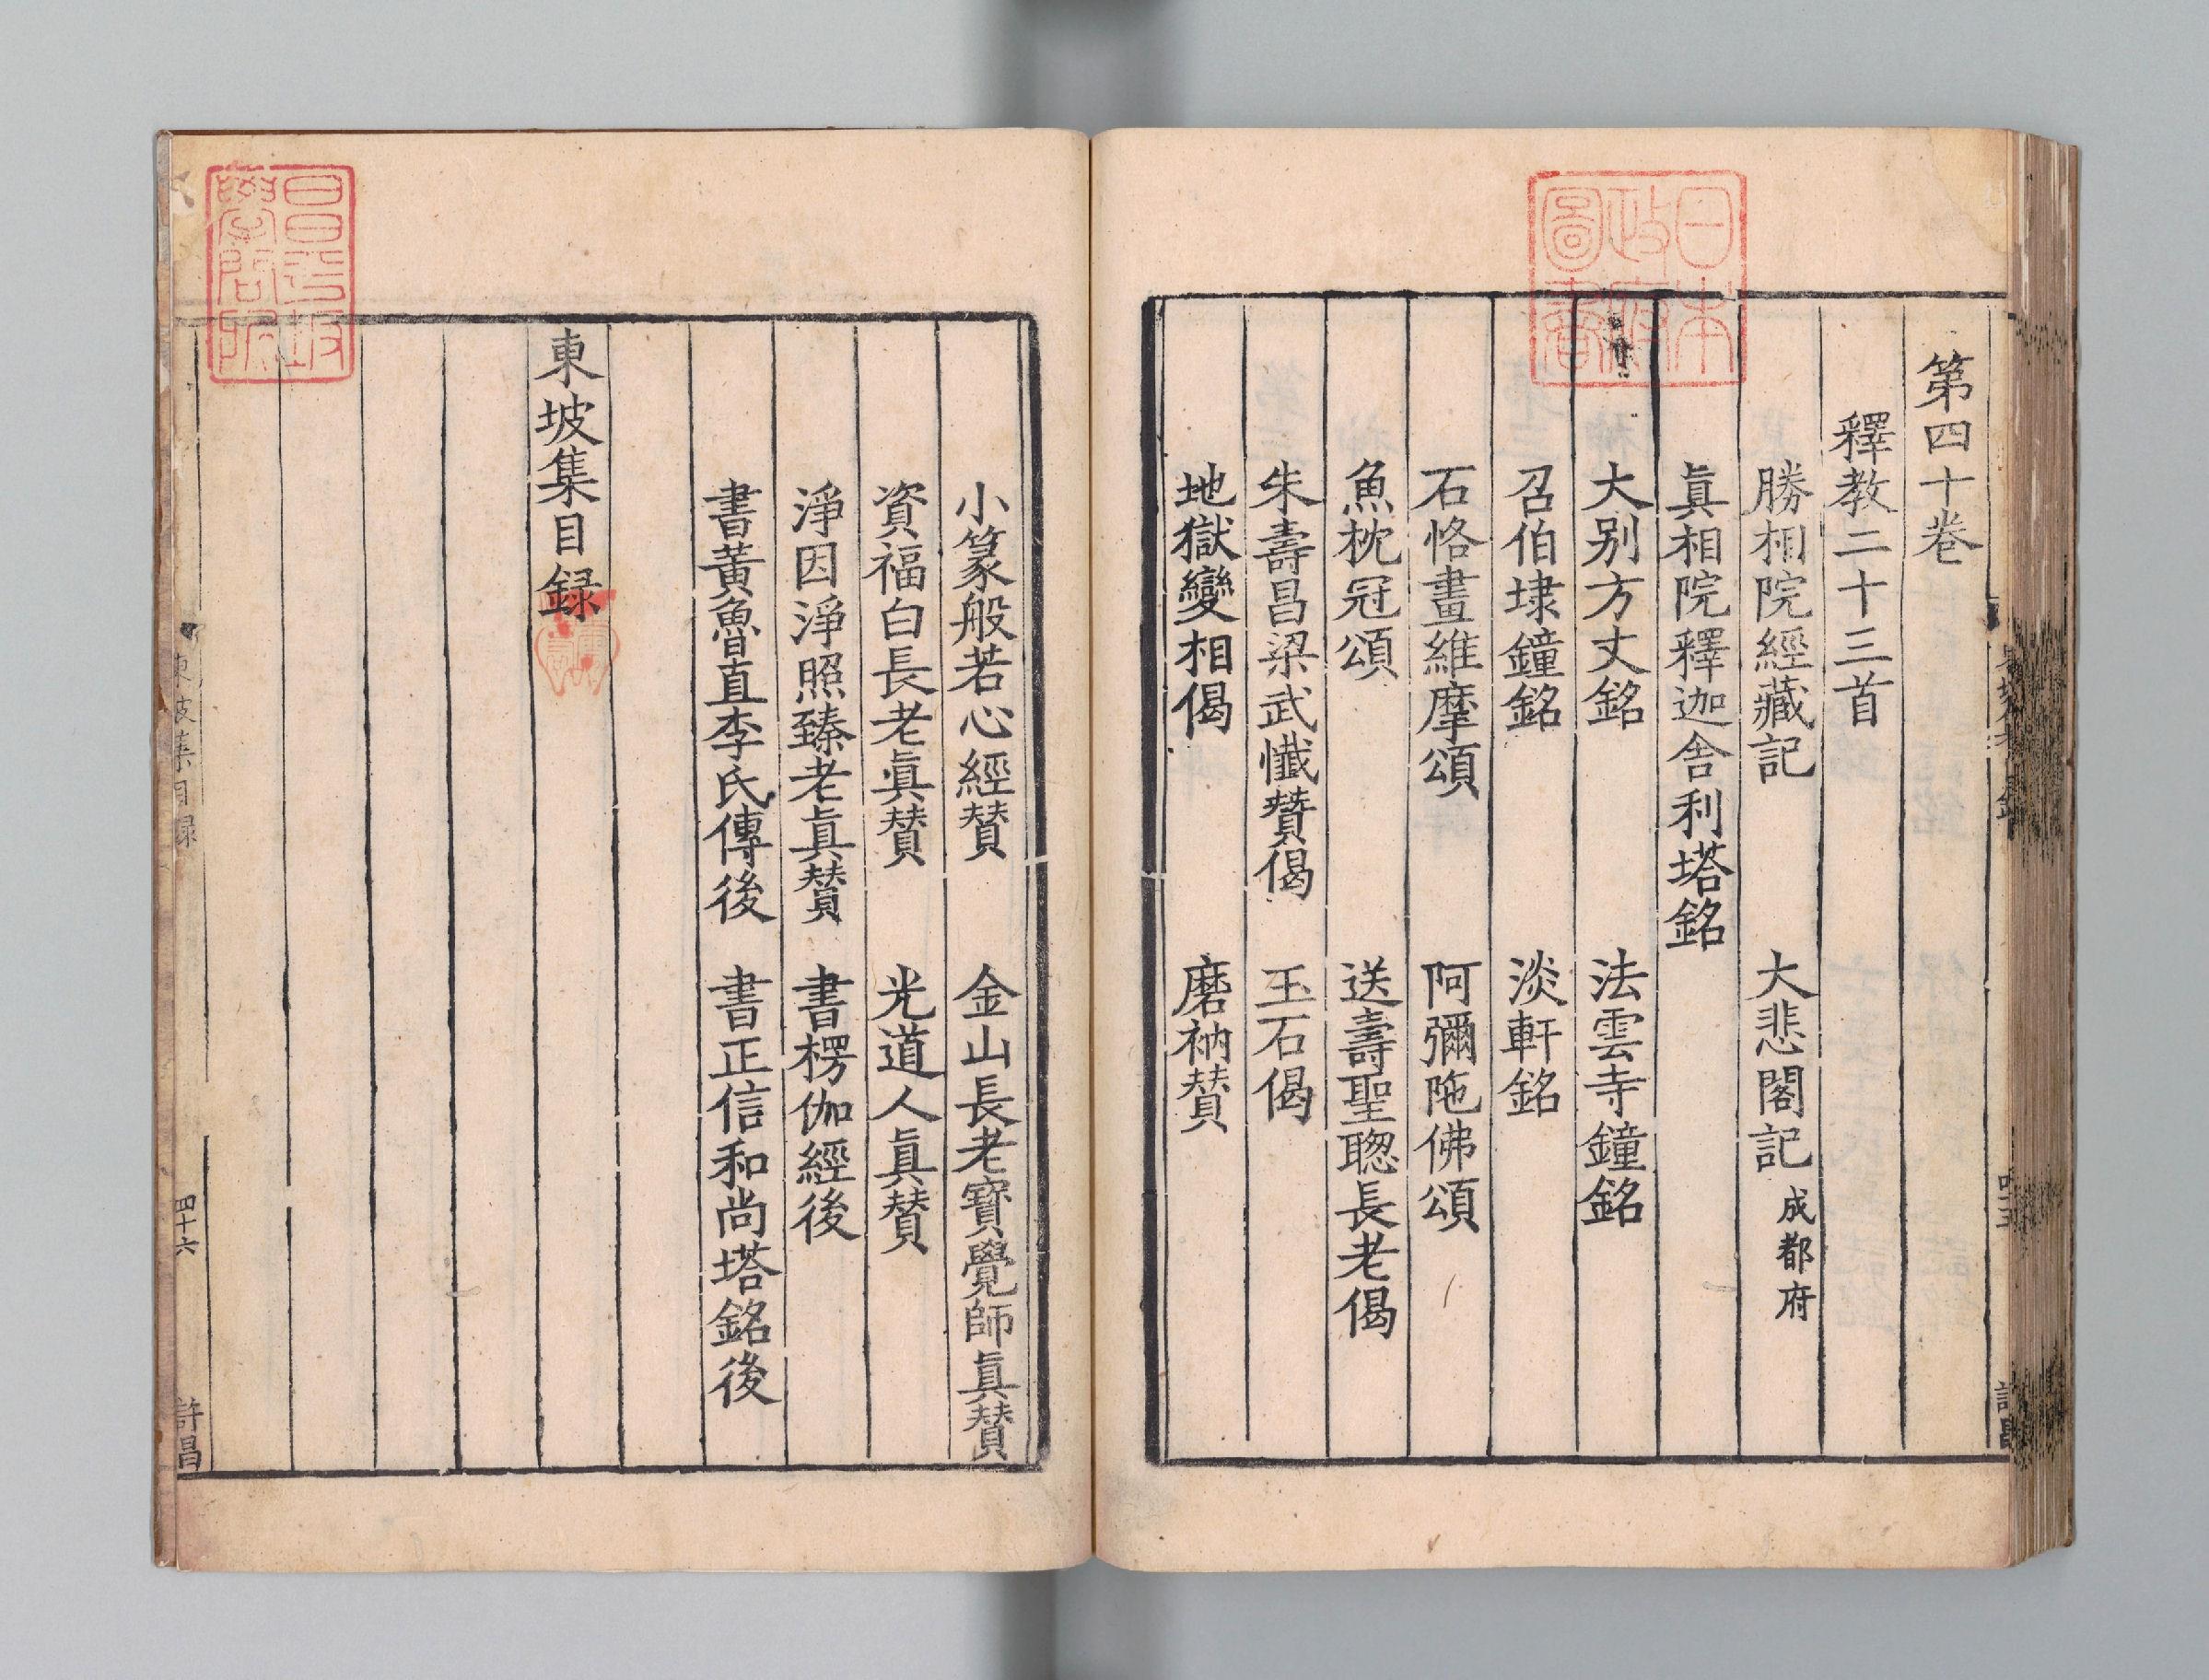 第四十卷
釋教二十三首
勝相院經藏記　大悲閣記　成都府
眞相院釋迦舎利塔銘
大别方丈銘　法雲寺鐘銘
召伯埭鐘銘　淡軒銘
石恪畫維摩頌　阿彌陁佛頌
魚枕冠頌　送壽聖聦長老偈
朱壽昌梁武懺贊偈　玉石偈
地獄變相偈　磨衲賛
日本政府圖書
小篆般若心經賛　金山長老寳覺師眞賛
資福白長老眞賛　光道人眞賛
淨因淨照臻老眞賛　書楞伽經後
書黃魯直李氏傳後　書正信和尚塔銘後
東坡集目録
昌平坂學問所
東坡集目録　四十六　許昌